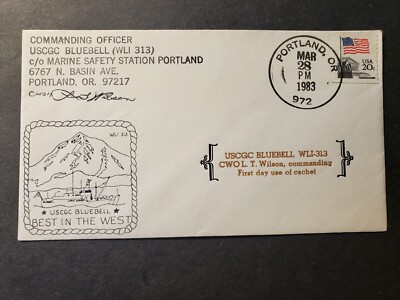 COMMANDING OFFICER
USCGC BLUEBELL (WLI 313)
c/o MARINE SAFETY STATION PORTLAND
6767 N. BASIN AVE.
PORTLAND, OR. 97217
CWO4 L. T. Wilson
PORTLAND, OR
MAR
28
PM
1983
972
USA
20c
WLI 313
USCGC BLUEBELL
★ BEST IN THE WEST ★
USCGC BLUEBELL WLI-313
CWO L. T. Wilson, commanding
First day use of cachet